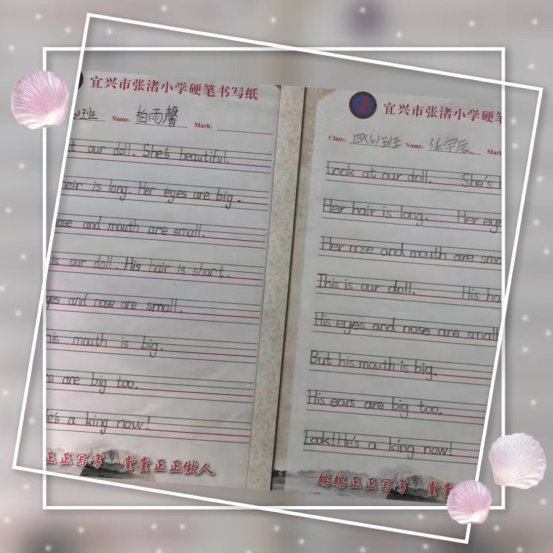 宜兴市张渚小学硬笔书写纸
班 Name: 柏雨馨 Mark:
our doll. She's beautiful.
hair is long. Her eyes are big.
nose and mouth are small.
is our doll. His hair is short.
eyes and nose are small.
his mouth is big.
are big too.
He's a king now!
正正写字 堂堂正正做人
宜兴市张渚小学硬笔
Class: 四(6)班 Name: Mark
Look at our doll. She's
Her hair is long. Her eye
Her nose and mouth are sma
This is our doll. His ha
His eyes and nose are small
But his mouth is big.
His ears are big too.
Look! He's a king now!
端端正正写字 堂堂